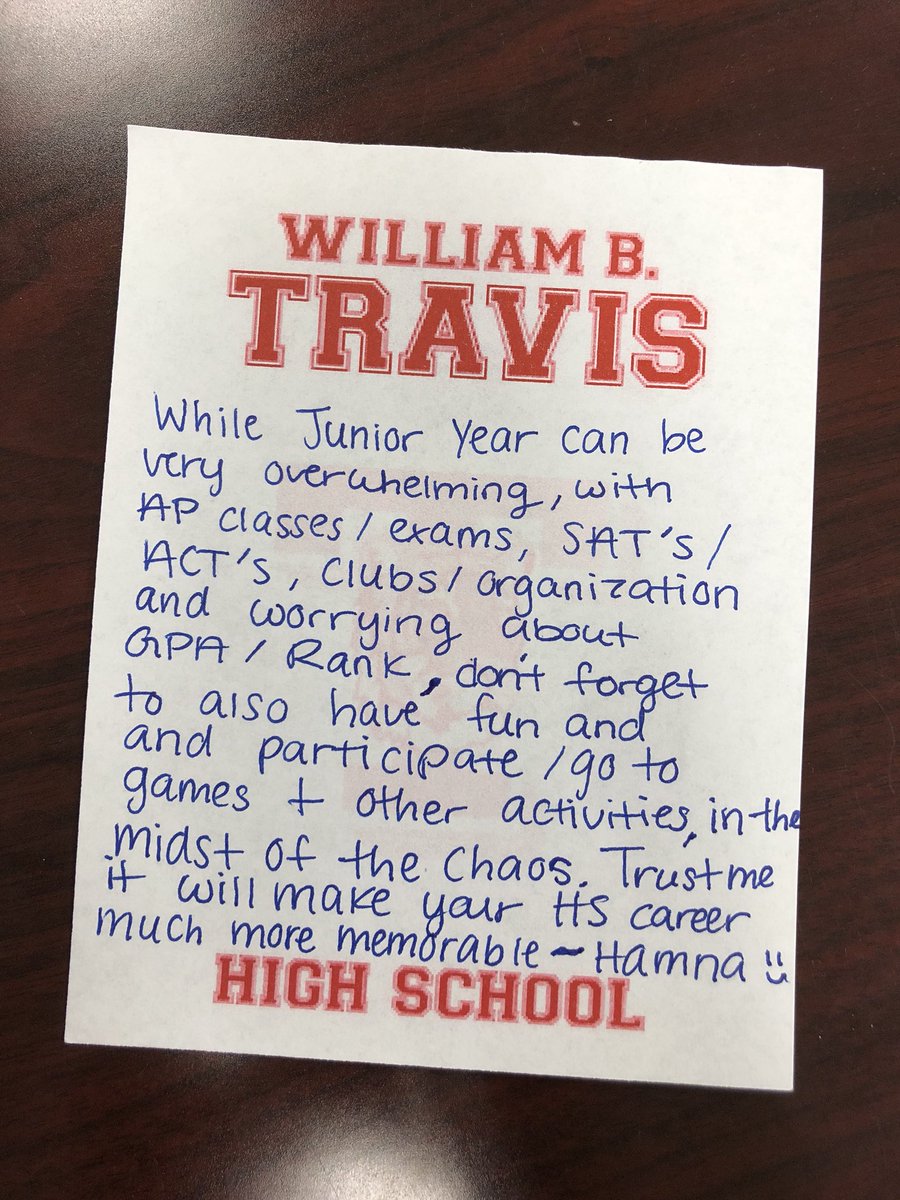 WILLIAM B.
TRAVIS
While Junior Year can be
very overwhelming, with
AP classes/ exams, SAT's/
ACT's, Clubs/ organization
and worrying about
GPA / Rank, don't forget
to also have fun and
and participate /go to
games + other activities, in the
midst of the Chaos. Trust me
it will make your HS career
much more memorable ~ Hamna :)
HIGH SCHOOL